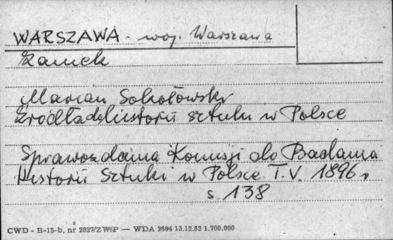 WARSZAWA - woj. Warszawa
Zamek
Marian Sokołowski
Źródła do historii sztuki w Polsce
Sprawozdania Komisji do Badania
Historii Sztuki w Polsce T. V. 1896 r
s. 138
CWD - B-15-b, nr 2827/ZWiP — WDA 3694 13.12.52 1.700.000